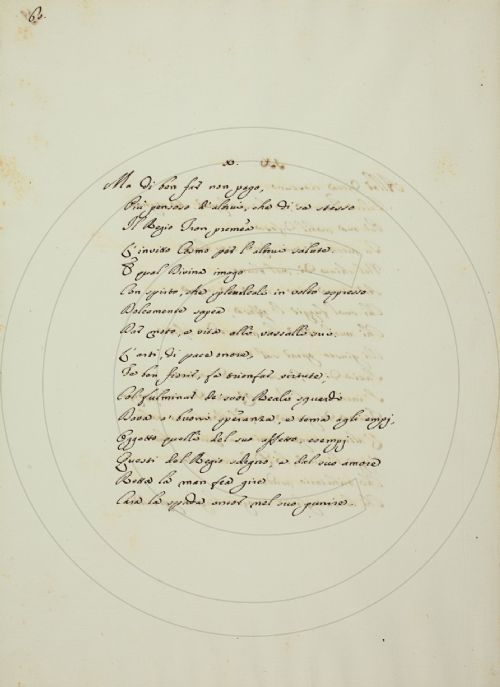 60.
x.
Ma di ben far non pago,
Più pensoso d'altrui, che di se stesso
Il Regio Tron premea
L'invitto Cosmo per l'altrui salute.
E qual Divina imago
Con spirto, che splendeale in volto espresso
Dolcemente sapea
Dar moto, e vita alli vassalli sui
L'arti, di pace onore,
Fe ben fiorir, fe trionfar virtute,
Col fulminar de' suoi Reale sguardo
Dava a' buoni speranza, e tema agli empj,
Oggetto quelli del suo affetto, esempj
Questi del Regio sdegno, e del suo amore
Retta la man fea gire
Cara la spada ancor nel suo punire.